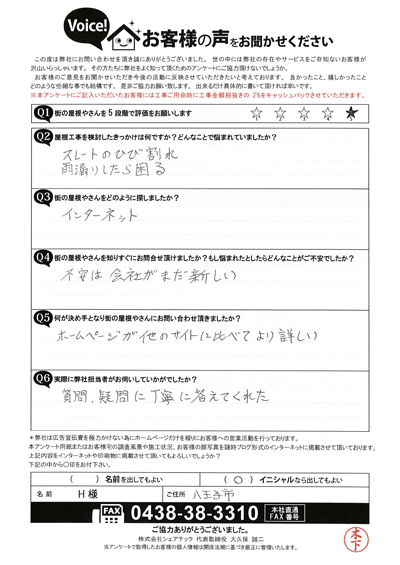 Voice!
お客様の声をお聞かせください
この度は弊社にお問い合わせを頂き誠にありがとうございました。 世の中には弊社の存在やサービスをご存知ないお客様が
沢山いらっしゃいます。 その方たちに弊社をよく知って頂くためのアンケートにご協力頂けないでしょうか。
お客様のご意見をお聞かせいただき今後の活動に反映させていただきたいと考えております。 良かったこと、嬉しかったこと
どのような些細な事でも結構です。 是非ご協力お願い致します。 出来るだけ具体的に書いて頂ければ幸いです。
※本アンケートにご記入いただいたお客様には工事ご用命時に工事金額税抜きの 2%をキャッシュバックさせていただきます。
Q1 街の屋根やさんを5段階で評価をお願いします
1 2 3 4 5
Q2 屋根工事を検討したきっかけは何ですか?どんなことで悩まれていましたか?
スレートのひび割れ
雨漏りしたら困る
Q3 街の屋根やさんをどのように探しましたか?
インターネット
Q4 街の屋根やさんを知りすぐにお問合せ頂けましたか?もし悩まれたとしたらどんなことがご不安でしたか?
不安は会社がまだ新しい
Q5 何が決め手となり街の屋根やさんにお問い合わせ頂きましたか?
ホームページが他のサイトに比べてより詳しい
Q6 実際に弊社担当者がお伺いしていかがでしたか?
質問、疑問に丁寧に答えてくれた
*弊社は広告宣伝費を極力かけない為にホームページだけを頼りにお客様への営業活動を行っております。
本アンケート用紙またはお客様宅の調査風景や施工状況、お客様の顔写真を随時ブログ形式のインターネットに掲載させて頂いております。
上記内容をインターネットや印刷物に掲載させて頂いてもよろしいでしょうか?
下記の中から〇印をお付け下さい。
( ) 名前を出してもよい ( ○ ) イニシャルなら出してもよい
名 前 H 様 ご住所 八王子市
FAX 0438-38-3310 本社直通 FAX番号
ご協力ありがとうございました。
株式会社シェアテック 代表取締役 大久保 誠二
当アンケートで取得したお客様の個人情報は関係法規に基づき厳正に管理いたします。
木下